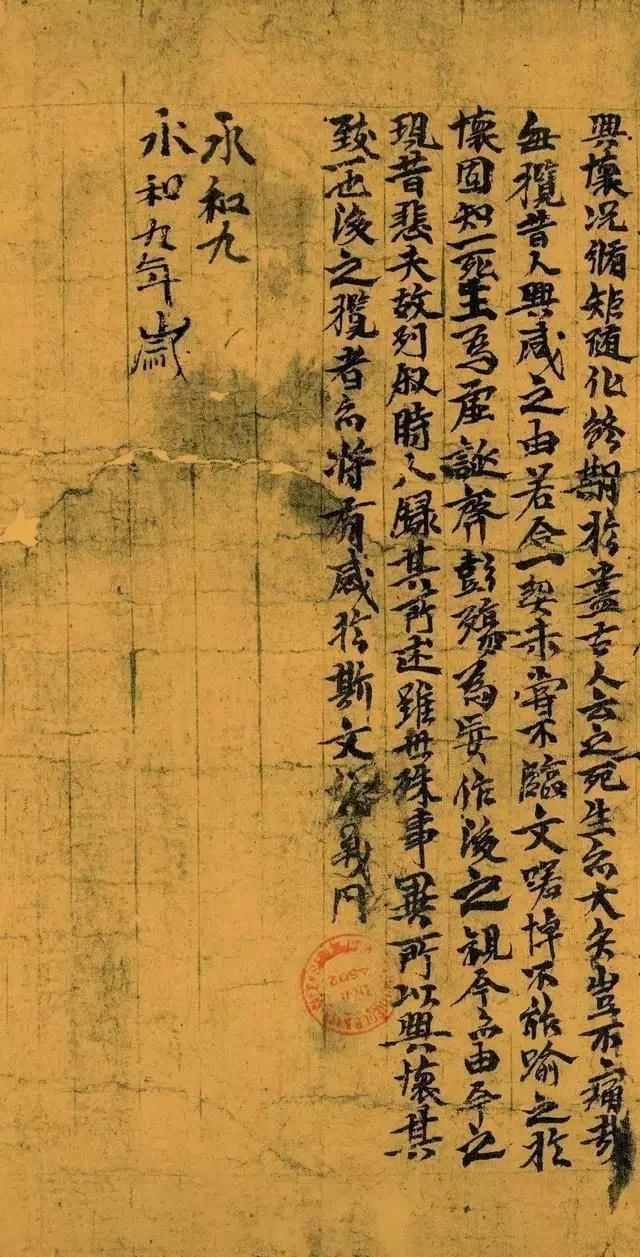 興懷况脩矩随化終期於盡古人云之死生亦大矣豈不痛哉
每攬昔人興感之由若合一契未嘗不臨文嗟悼不能喻之於
懷固知一死生爲虛誕齊彭殤為妄作後之視今亦由今之
現昔悲夫故列叙時人録其所述雖世殊事異所以興懷其
致一也後之攬者亦將有感於斯文
永和九
永和九年歲